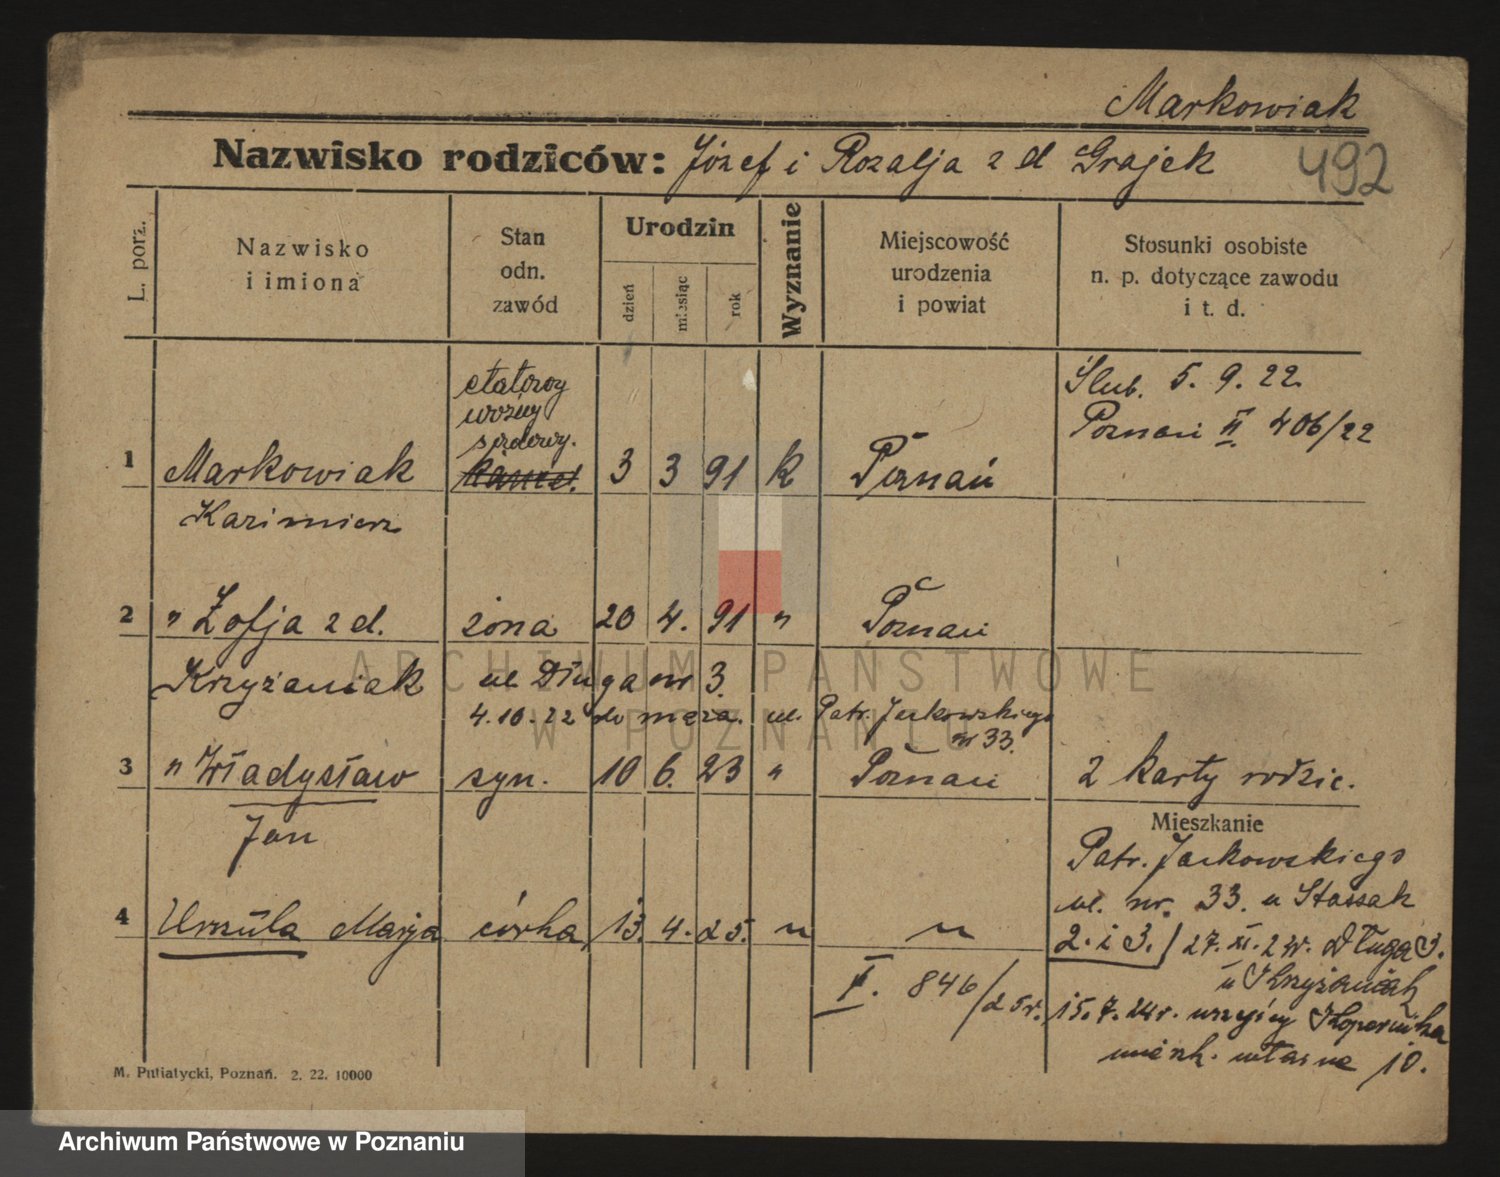 Markowiak
Nazwisko rodziców: Józef i Rozalja z d Grajek
492
L. porz.
Nazwisko i imiona
Stan odn. zawód
Urodzin
dzień
miesiąc
rok
Wyznanie
Miejscowość urodzenia i powiat
Stosunki osobiste n. p. dotyczące zawodu i t. d.
etatowy
woźny
sądowy.
Ślub. 5. 9. 22.
Poznań II 406/22
1 Markowiak 3 3 91 k Poznań
Kazimierz
2 " Zofja z d. żona 20 4. 91 " Poznań
Krzyżaniak ul Długa nr 3.
4.10.22 do męża. ul. Patr. Jackowskiego
nr 33.
3 " Władysław syn. 10 6. 23 " Poznań 2 karty rodzic.
Jan
Mieszkanie
Patr. Jackowskiego
ul. nr. 33. u Stassak
4 Urszula Marja córka 13. 4. 25. " "
2. i 3.) 27. XI. 2 Długa 3.
u Krzyżaniak
II. 846/25r.
15. 7. 24r. wszyscy Kopernika
mieszk. własne 10.
M. Putiatycki, Poznań. 2. 22. 10000
ARCHIWUM PAŃSTWOWE
W POZNANIU
Archiwum Państwowe w Poznaniu